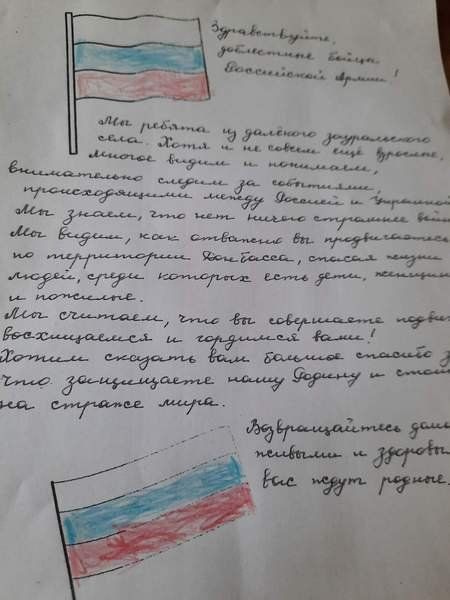 Здравствуйте,
доблестные бойцы
Российской Армии!
Мы ребята из далёкого зауральского
села. Хотя и не совсем ещё взрослые,
многое видим и понимаем,
внимательно следим за событиями,
происходящими между Россией и Украиной
Мы знаем, что нет ничего страшнее войн
Мы видим, как отважно вы продвигаетесь
по территории Донбасса, спасая жизни
людей, среди которых есть дети, женщин
и пожилые.
Мы считаем, что вы совершаете подвиг
восхищаемся и гордимся вами!
Хотим сказать вам большое спасибо з
что защищаете нашу Родину и стои
на страже мира.
Возвращайтесь дом
живыми и здоровы
вас ждут родные.